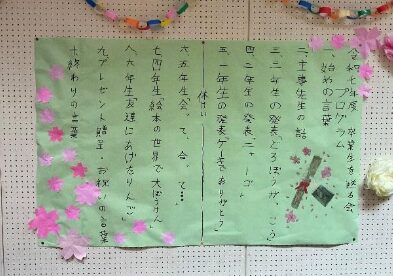 令和七年度 卒業生を送る会
プログラム
一、始めの言葉
二、主事先生の話
三、三年生の発表「どろぼうがっこう」
四、二年生の発表「ニャーゴ」
五、一年生の発表「ケーキをありがとう」
休けい
六、五年生「会って、合って、…
七、四年生「絵本の世界で大ぼうけん」
八、六年生「友達にあげたりんご」
九、プレゼント贈呈・お祝いの言葉
十、終わりの言葉